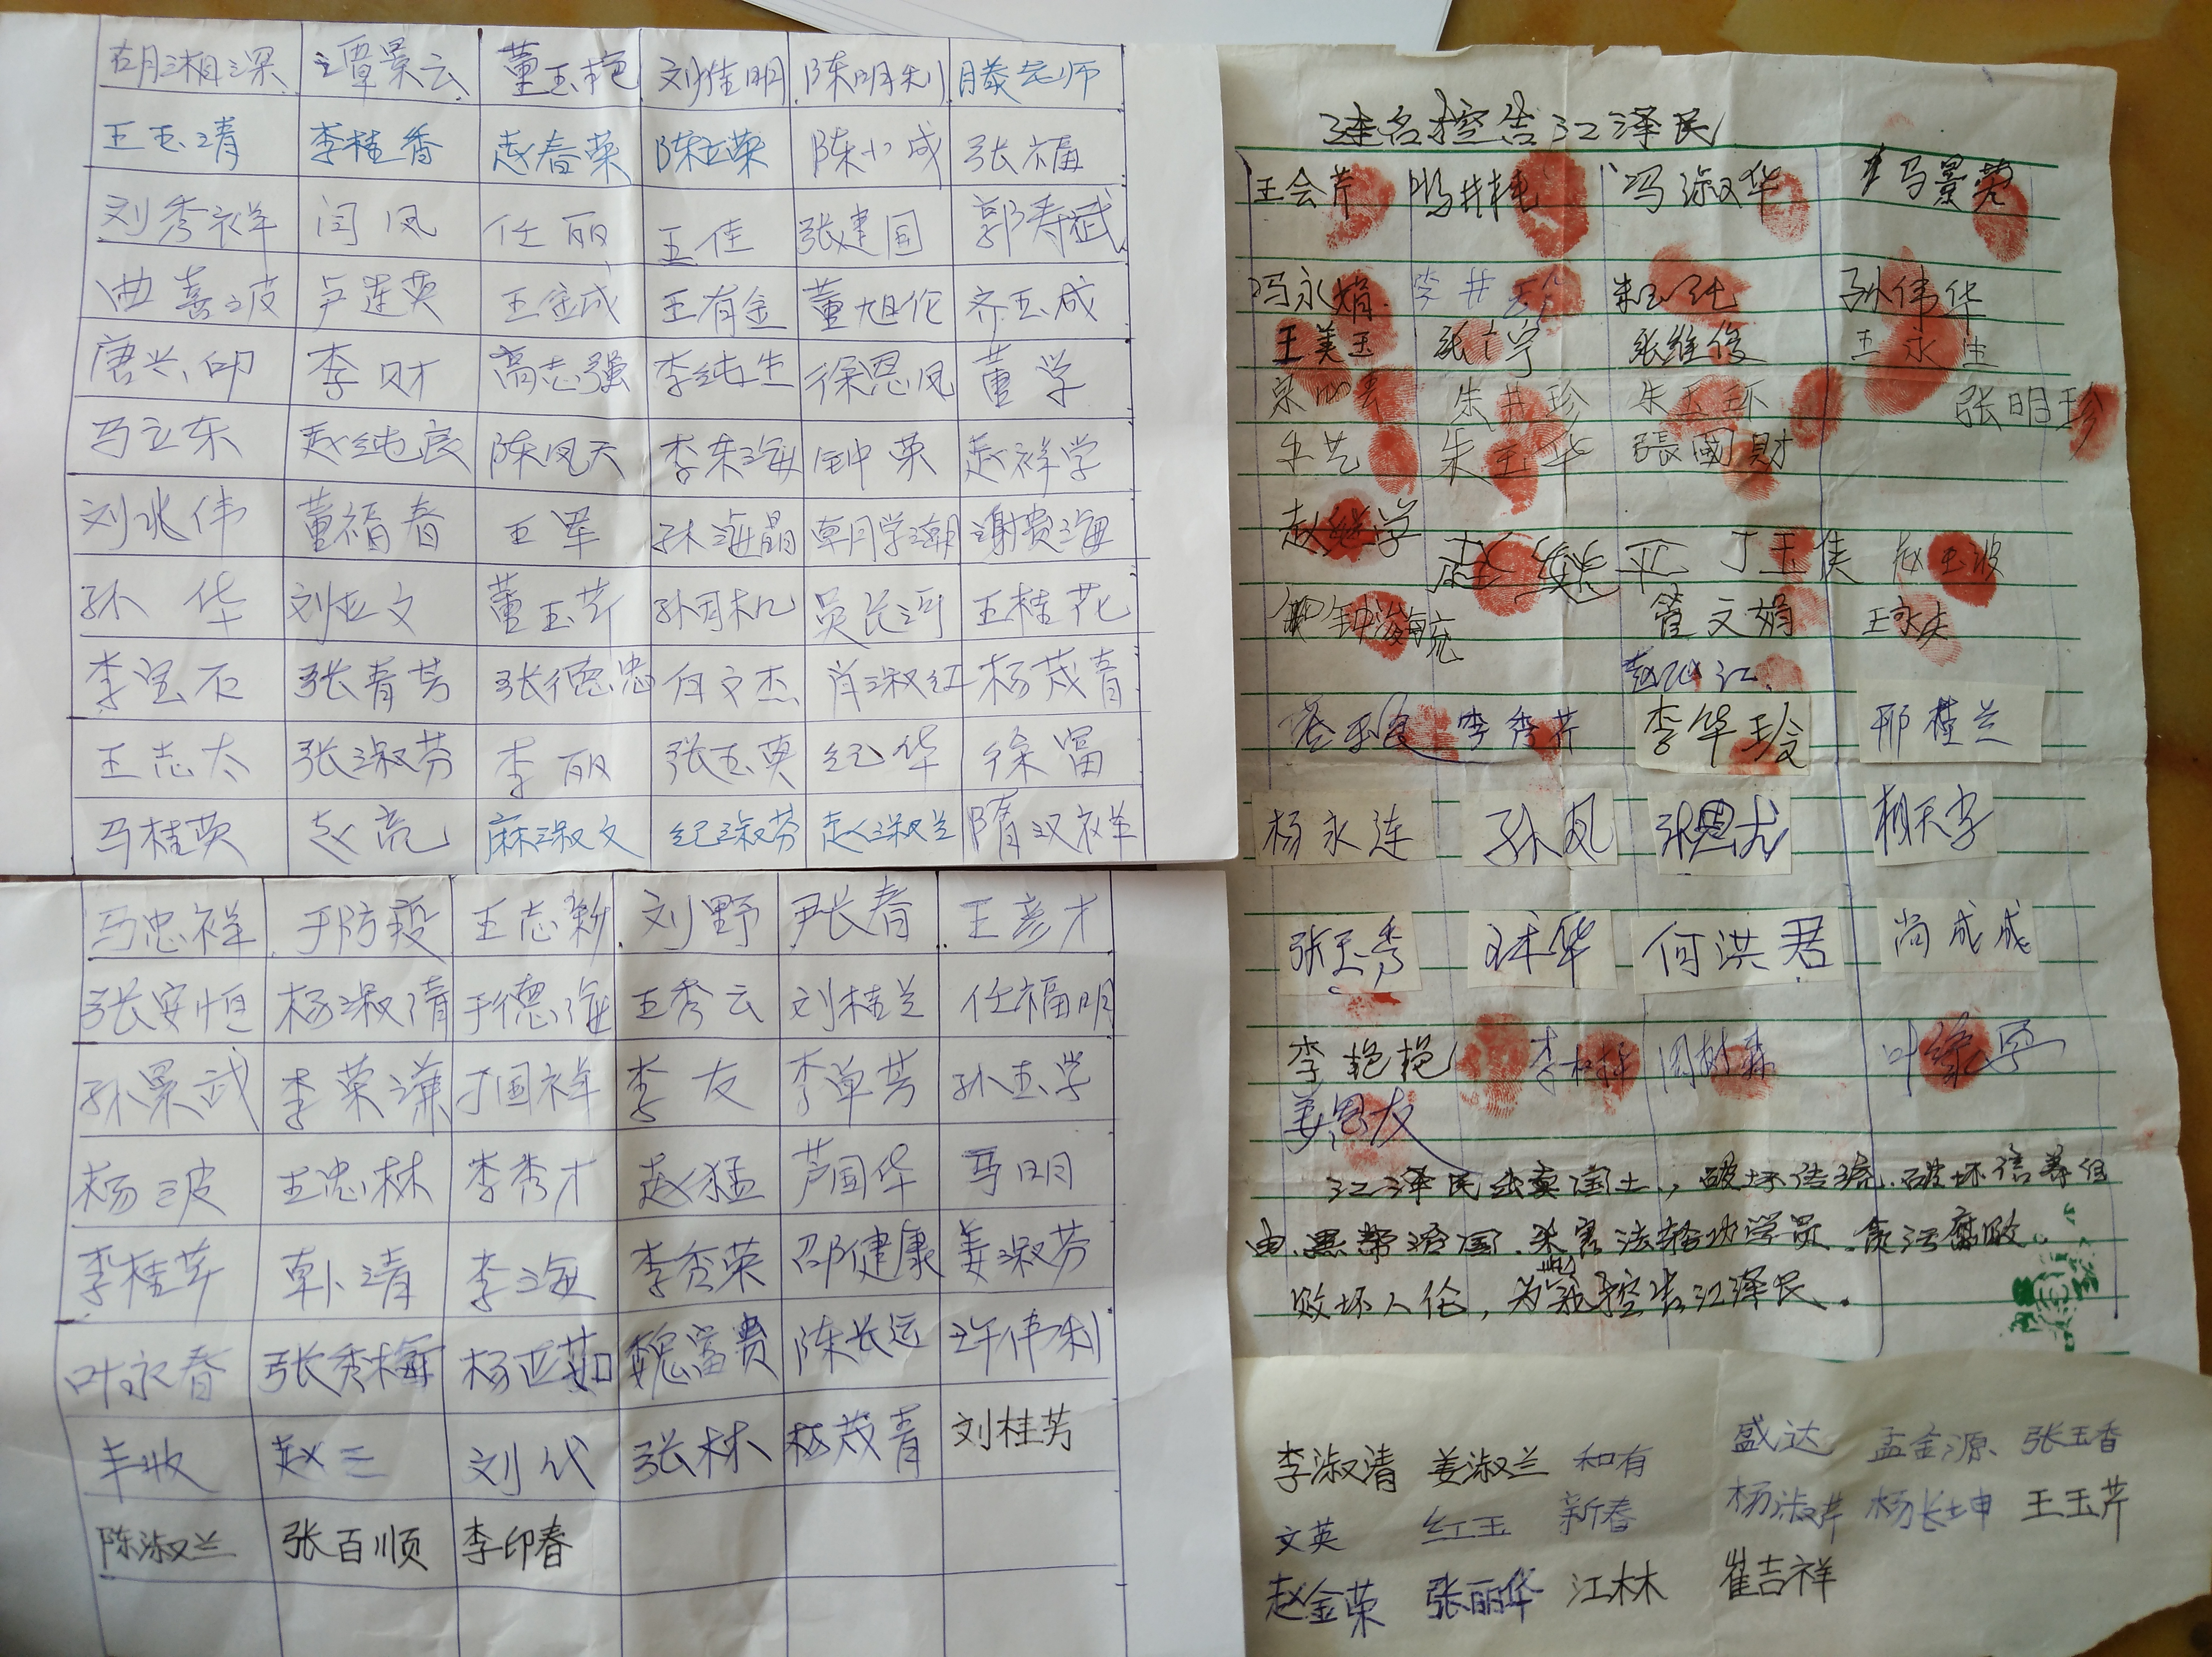 胡湘深 谭景云 董玉艳 刘佳明 陈明利 滕老师
王玉清 李桂香 赵春荣 陈立荣 陈小成 张福
刘秀祥 闫凤 任丽 王佳 张建国 郭寿斌
曲喜波 卢莲英 王金成 王有金 董旭伦 齐玉成
唐兴印 李财 高志强 李纯生 徐恩凤 董学
马立东 赵纯良 陈凤天 李东海 钟英 赵祥学
刘兆伟 董福春 王军 孙海晶 谢贵海
孙华 刘亚文 董玉芹 吴长河 王桂花
李宝石 张青芳 张德忠 白文杰 肖淑红 杨茂春
王志太 张淑芬 李丽 张玉英 纪华 徐富
马桂英 赵亮 麻淑文 纪淑芬 赵淑兰 隋汉祥
马忠祥 于防疫 王志新 刘野 尹长春 王彦才
张安恒 杨淑清 于德海 王秀云 刘桂兰 任福明
孙景武 李荣谦 丁国祥 李友 李单芳 孙玉学
杨波 王忠林 李秀才 赵猛 芦国华 马明
李桂芹 韩清 李海 李秀荣 邵健康 姜淑芬
叶永春 张秀梅 杨亚茹 魏富贵 陈长远 许伟利
丰收 赵三 刘代 张林 杨茂青 刘桂芳
陈淑兰 张百顺 李印春
连名控告江泽民
王会芹 冯淑华 马景荣
冯永娟 孙伟华
王美玉 张宁 张维俊 王永生
朱井珍 朱玉环 张明珍
朱玉华 張國財
赵继学
丁玉侠 赵玉波
管文娟
李秀芹 李华玲 邢桂兰
杨永连 孙凤 张恩尤
张玉秀 何洪君 尚成成
李艳艳 周树森
姜恩友
江泽民出卖国土，破坏传统，破坏信养自
由，黑帮治国，杀害法轮功学员，贪污腐败
败坏人伦，为此我控告江泽民。
李淑清 姜淑兰 和有 盛达 孟金源 张玉香
文英 红玉 新春 杨淑芹 杨长坤 王玉芹
赵金荣 张丽华 江林 崔吉祥